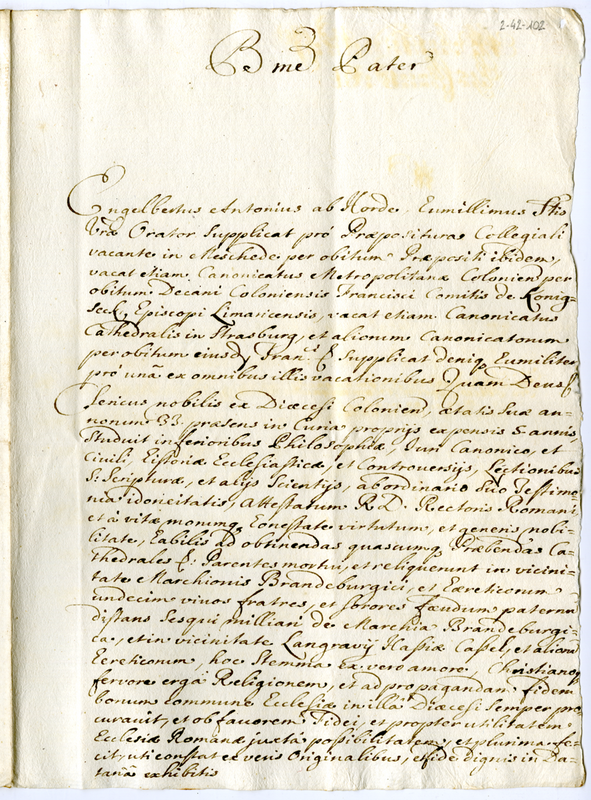 2-42-102
Bme Pater
Engelbertus Antonius ab Horde, Eumillimus Stis
Vrae Orator Supplicat pro Praepositura Collegiali
vacante in Meschede per obitum Praepositi ibidem,
vacat etiam Canonicatus Metropolitanae Coloniens per
obitum Decani Coloniensis Francisci Comitis de König=
seck, Episcopi Limaricensis, vacat etiam Canonicatus
Cathedralis in Strasburg, et aliorum Canonicatorum
per obitum eiusd Franci Supplicat deniq Eumiliter
pro una ex omnibus illis vacationibus Quam Deus
Clericus nobilis ex Diaecesi Colonien, aetatis suae an=
norum 33, praesens in Curia proprijs expensis 5 annis,
Studuit inferioribus Philosophiae, Juri Canonico, et
Civili, Eistoriae Ecclesiasticae, et Controversijs, Lectionibus
S: Scripturae, et alijs Scientijs, ab ordinario suo Testimo
nia idoneitatis, Attestatum R D. Rectoris Romani
et a vitae morumq Eonestate virtutum, et generis nobi=
litate, Eabilis ad obtinendas quascumq Praebendas Ca=
thedrales Parentes mortui, et reliquerunt in vicini=
tate Marchionis Brandeburgici, et Eaereticorum
undecim vivos fratres, et sorores faeudum paternu
distans Sesqui milliari de Marchia Brandeburgi=
ca, et in vicinitate Langravij Hassiae Cassel, et aliorum
Eereticorum, hoc Stemma ex vero amore, Christianoq
fervore erga Religionem, et ad propagandam fidem
bonum commune Ecclesiae in illa Diaecesi semper pro
curavit, et ob favorem Fidei, et propter utilitatem
Ecclesiae Romanae juxta possibilitatem, et plurima fe=
cit, uti constat ex veris Originalibus, et fide dignis in Da=
taria exhibitis